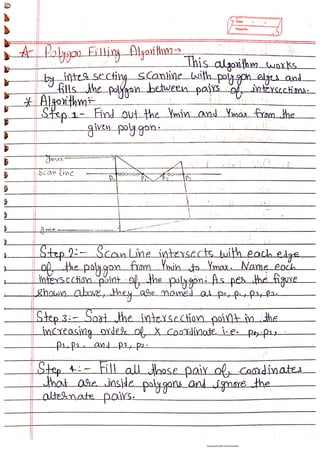 Date
Page No.
A Polygon Filling Algorithm →
This algorithm works
by intersecting scanline with polygon edges and
fills the polygon between pairs of intersections.
* Algorithm :-
Step 1 - Find out the Ymin and Ymax from the
given polygon.
Ymax
Scan line
Step 2:- ScanLine intersects with each edge
of the polygon from Ymin to Ymax. Name each
intersection point of the polygon. As per the figure
shown above, they are named as p0, p1, p2, p3.
Step 3:- Sort the intersection point in the
increasing order of X coordinate i.e.
Step 4:- Fill all those pair of coordinates
that are inside polygons and ignore the
alternate pairs.
Scanned with CamScanner